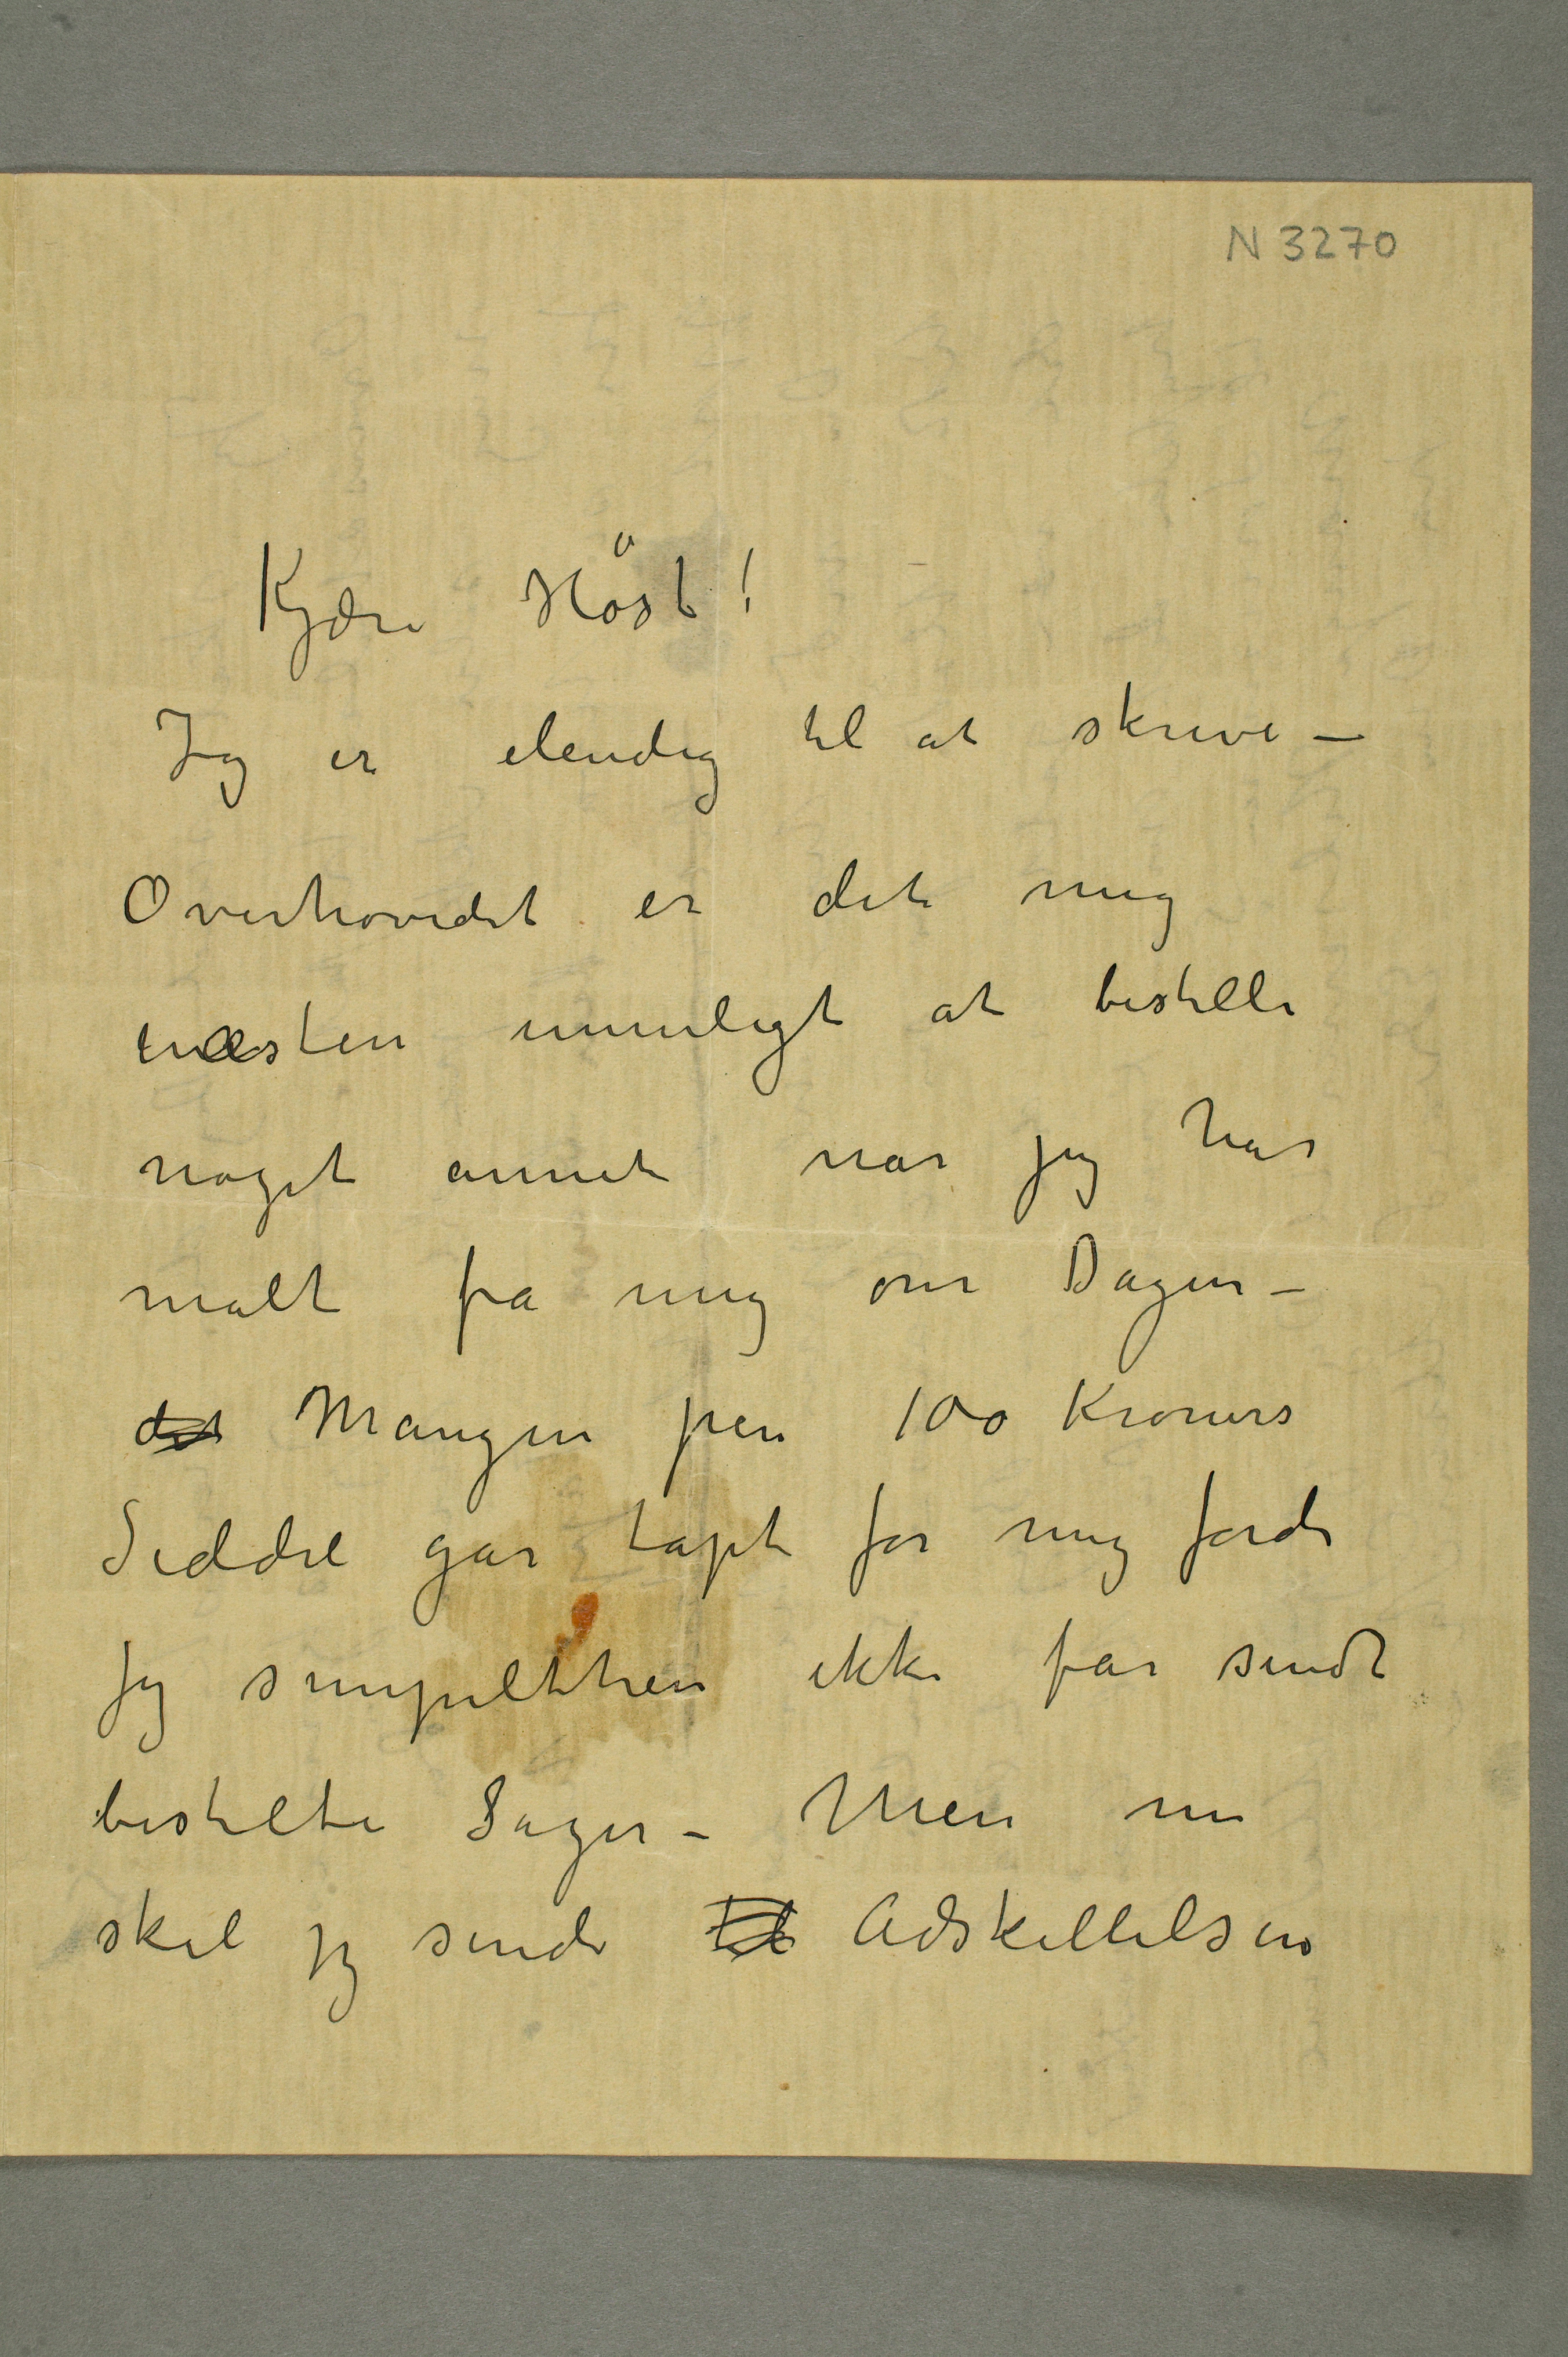 N 3270
Kjære Höst!
Jeg er elendig til at skrive –
Overhovedet er det mig
næsten umuligt at bestille
noget annet nar jeg har
malt fra mig om Dagen –
det Mangen pen 100 Kroners
Seddel gar tapt for mig fordi
jeg simpelthen ikke far sendt
bestilte Sager – Men nu
skal jeg sende til Adskillelsen